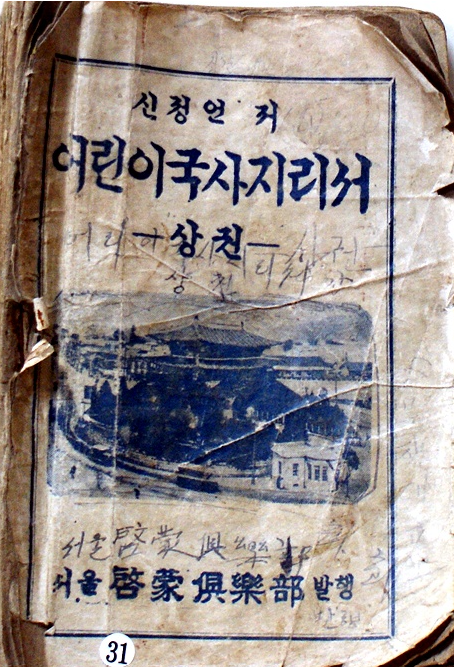 신정언 저
어린이국사지리서
—상권—
상권
서울 啓蒙 俱樂部
서울 啓蒙 俱樂部 발행
발행
31